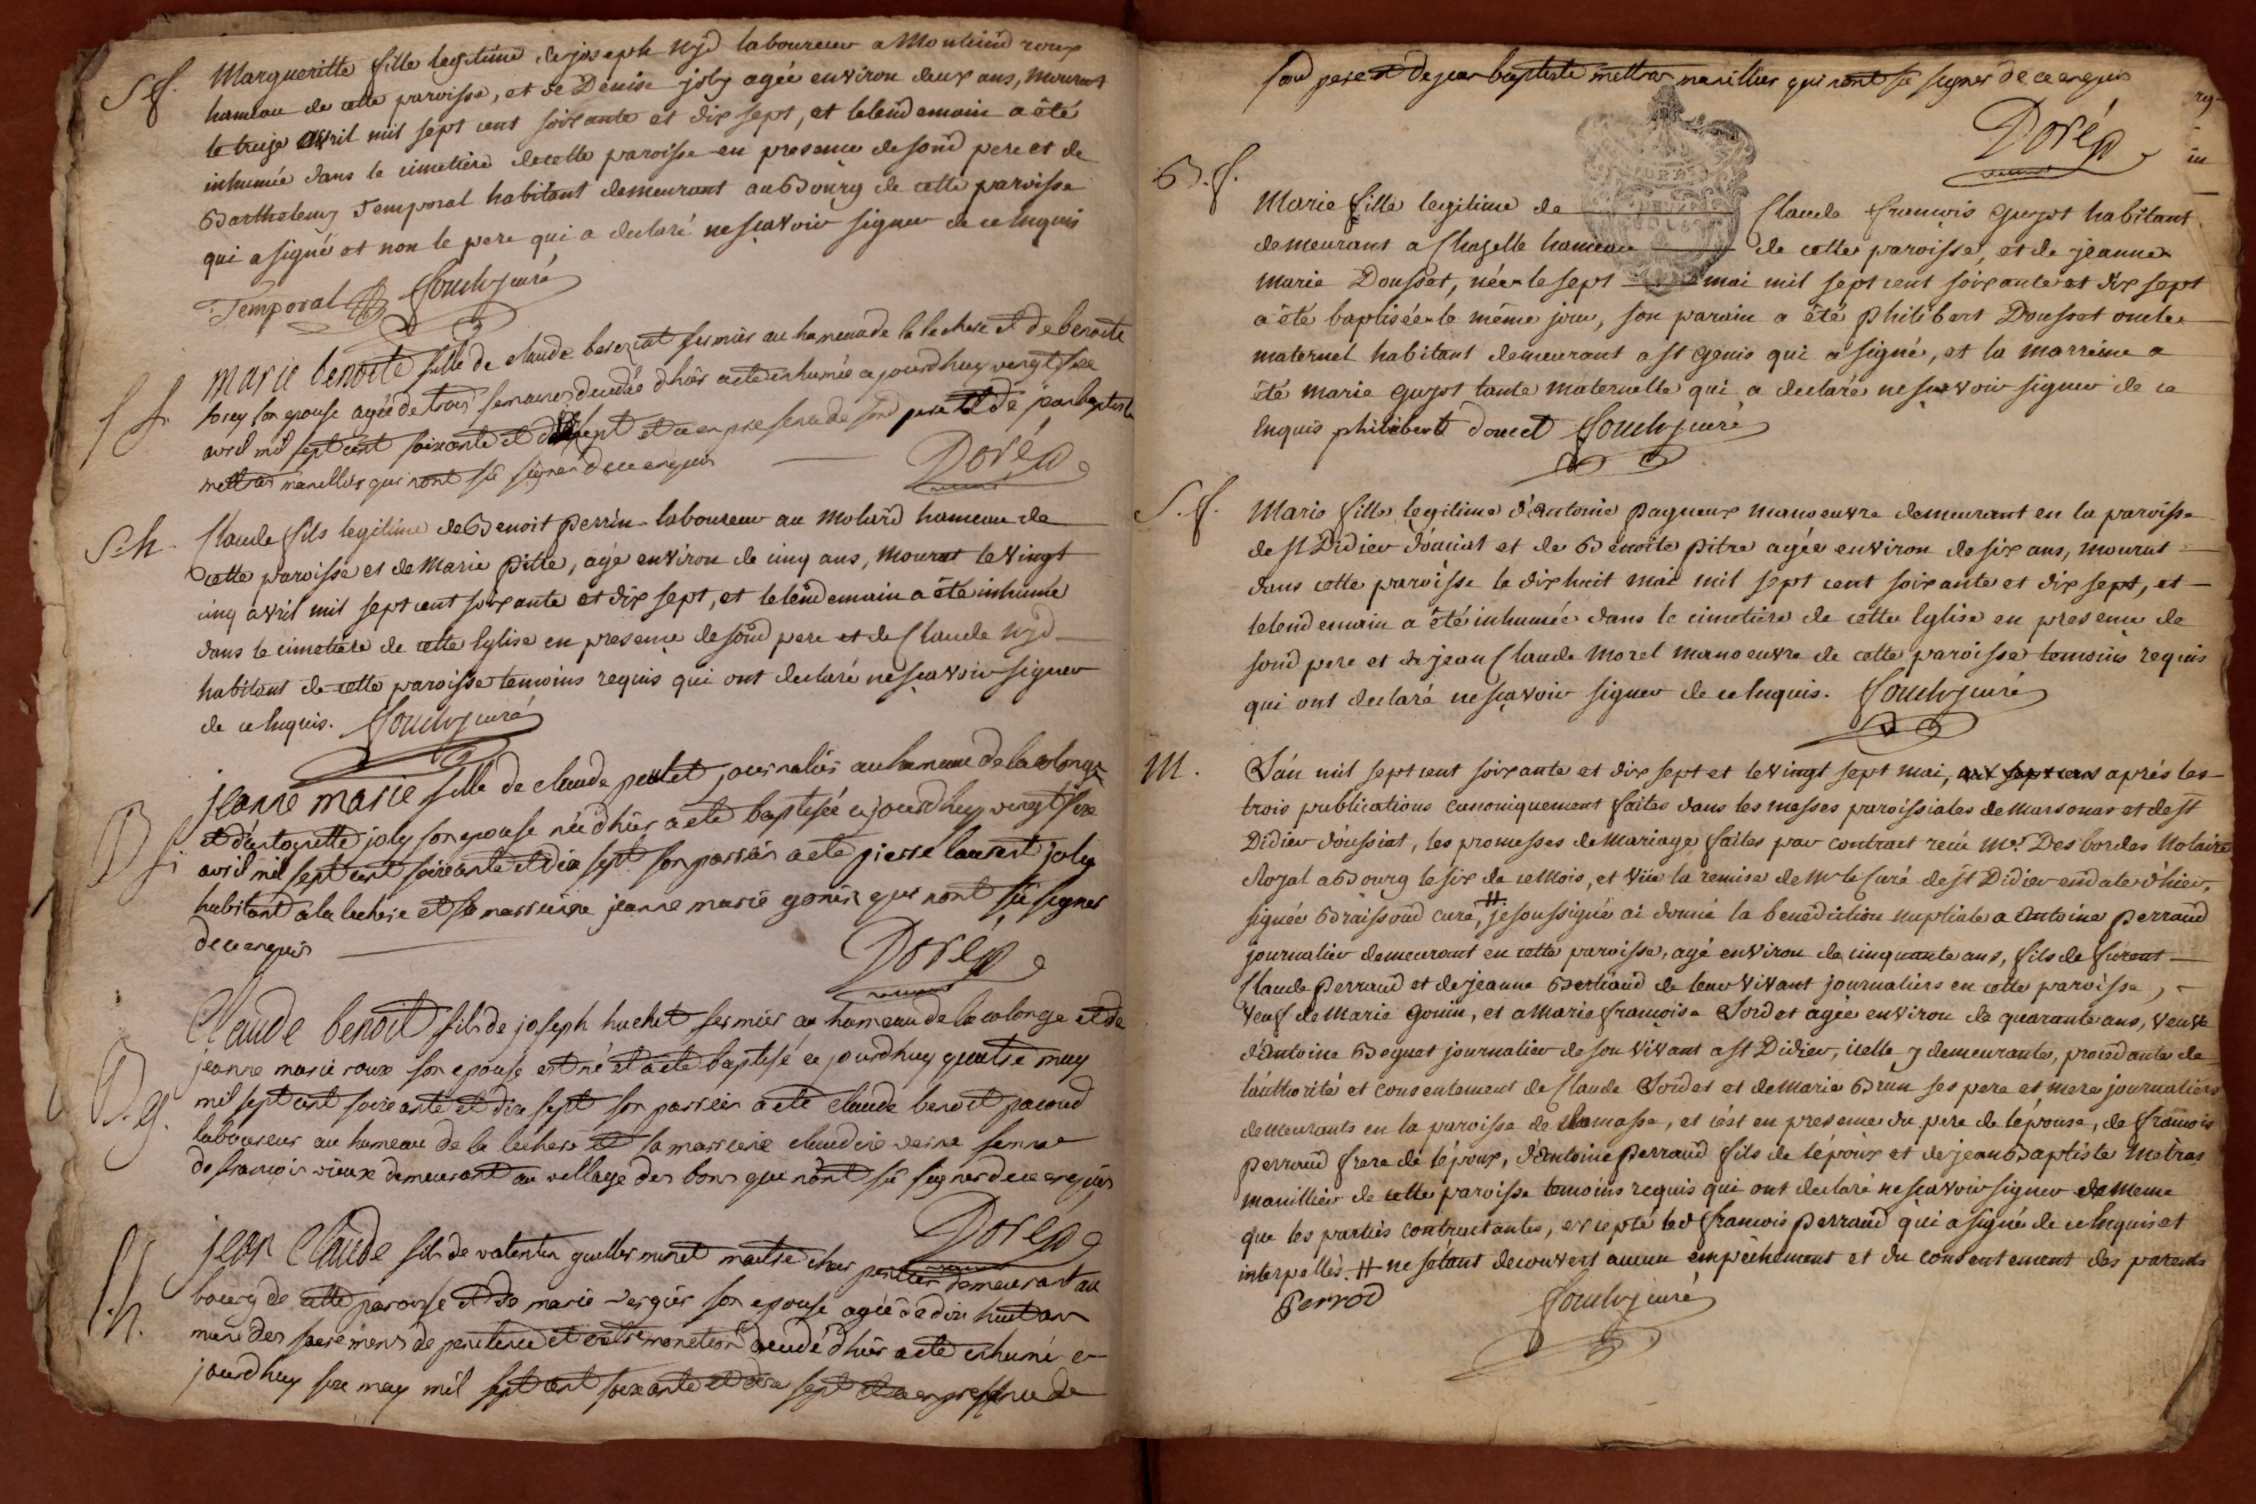 S.f.
Margueritte fille legitime de joseph nyd laboureur a Montlind roux
hameau de cette paroisse, et de Denise joly agée environ deux ans, mourut
le treize avril mil sept cent soixante et dix sept, et lelendemain a été
inhumée dans le cimetiere de cette paroisse en presence de soud pere et de
Barthelemy Temporal habitant demeurant au Bourg de cette paroisse
qui a signé et non le pere qui a declaré ne sçavoir signer de ce Enquis
Temporal curé
S f.
marie benoite fille de claude berezeat fermier au hameau de la lechere et de benoite
sorey son epouse agée de trois semaines decedée d'hier a eté inhumée cejourdhuy vergt six
avril mil sept cent soixante et dix sept et ce en presence de soud pere et de jean baptiste
mettras marellier qui n'ont sû signer de ce enquis
Doré
S.h.
Claude fils legitime de Benoit Perrin laboureur au Molard hameau de
cette paroisse et de Marie Pitte, agé environ de cinq ans, mourut le vingt
cinq avril mil sept cent soixante et dix sept, et lelendemain a été inhumé
dans le cimetiere de cette Eglise en presence de soud pere et de Claude nyd
habitant de cette paroisse temoins requis qui ont declaré ne sçavoir signer
de ce Enquis. curé
B f
jeanne marie fille de claude pentet journalier au hameau de la colonge
et d'antoynette joly son epouse née d'hier a eté baptisée cejourdhuy vergt six
avril mil sept cent soixante et dix sept son parrain a eté pierre laurent joly
habitant a la lechere et sa marraine jeanne marie gonin qui n'ont sû signer
de ce enquis
Doré
B.g.
Claude benoit fils de joseph huchet fermier au hameau de la colonge et de
jeanne marie roux son epouse est né et a eté baptisé ce jourdhuy quatre may
mil sept cent soixante et dix sept son parrein a eté claude benoit pacoud
laboureur au hameau de la lechere et sa marreine claudine verne femme
de françois vieux demeurant au village des bons qui n'ont sû signer de ce enquis
Doré
S.h.
jean Claude fils de valentin guillerminet maitre charpentier demeurant au
bourg de cette paroisse et de marie vergier son epouse agée de dix huit ans
muni des sacremens de penitence et extremonction decedé d'hier a eté inhumé ce
jourdhuy six may mil sept cent soixante et dix sept et ce en presence de
soud pere et de jean baptiste mettras marillier qui n'ont sû signer de ce enquis
Doré
B.f.
Marie fille legitime de Claude François Guyot habitant
demeurant a Chazelle hameau de cette paroisse, et de jeanne
Marie Dousset, née le sept mai mil sept cent soixante et dix sept
a été baptisée le même jour, son parain a été Philibert Dousset oncle
maternel habitant demeurant a St Genis qui a signé, et la marreine a
été marie Guyot tante maternelle qui a declaré ne sçavoir signer de ce
Enquis philibert doucet curé
S.f.
Marie fille legitime d'Antoine Pagneux manoeuvre demeurant en la paroisse
de St Didier d'oussiat et de Benoite Pitre agée environ de six ans, mourut
dans cette paroisse le dix huit mai mil sept cent soixante et dix sept, et
lelendemain a été inhumée dans le cimetiere de cette Eglise en presence de
soud pere et de jean Claude Morel manoeuvre de cette paroisse temoins requis
qui ont declaré ne sçavoir signer de ce Enquis. curé
M.
L'an mil sept cent soixante et dix sept et le vingt sept mai, aprés les
trois publications canoniquement faites dans les messes paroissiales de Marsonas et de St
Didier d'oussiat, les promesses de Mariage faites par contract recu Mr Desbordes Notaire
Royal a Bourg le six de ce Mois, et vüe la remise de Mr le Curé de St Didier en date d'hier,
signée Braissoud curé, # je soussigné ai donné la benediction nuptiale a Antoine Perraud
journalier demeurant en cette paroisse, agé environ de cinquante ans, fils de furent
Claude Perraud et de jeanne Bertiaud de leur vivant journaliers en cette paroisse,
veuf de Marie Gonin, et a Marie françoise Sordet agée environ de quarante ans, veuve
d'Antoine Beguet journalier de son vivant a St Didier, icelle y demeurante, procedante de
l'authorité et consentement de Claude Sordet et de Marie Brun ses pere et mere journaliers
demeurants en la paroisse de , et c'est en presence du pere de l'épouse, de François
Perraud frere de l'époux, d'Antoine Perraud fils de l'époux et de jean Baptiste Metras
manillier de cette paroisse temoins requis qui ont declaré ne sçavoir signer de meme
que les parties contractantes, excepté led françois Perraud qui a signé de ce Enquis et
interpellés. # ne s'étant decouvert aucun empêchement et du consentement des parents
Perrod curé